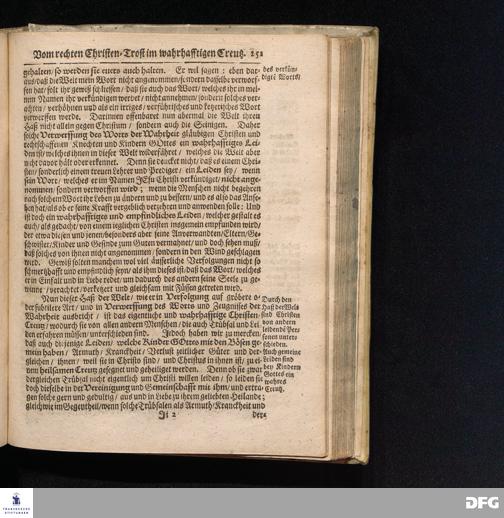 Vom rechten Christen-Trost im wahrhafftigen Creutz. 251
gehalten/ so werden sie eures auch halten. Er wil sagen: eben dar-
aus/ daß die Welt mein Wort nicht angenommen/ sondern dasselbe verworf-
fen hat/ solt ihr gewiß schliessen/ daß sie auch das Wort/ welches ihr in mei-
nem Namen ihr verkündigen werdet/ nicht annehmen/ sondern solches ver-
achten/ verhöhnen und als ein irriges/ verführisches und ketzerisches Wort
verwerffen werde. Darinnen offenbaret nun abermal die Welt ihren
Haß nicht allein gegen Christum/ sondern auch die Seinigen. Daher
solche Verwerffung des Worts der Wahrheit gläubigen Christen und
rechtschaffenen Knechten und Kindern GOttes ein wahrhafftiges Lei-
den ist/ welches ihnen in dieser Welt widerfähret/ welches die Welt aber
nicht davor hält oder erkennet. Denn sie dencket nicht/ daß es einem Chri-
sten/ sonderlich einem treuen Lehrer und Prediger/ ein Leiden sey/ wenn
sein Wort/ welches er im Namen JEsu Christi verkündiget/ nicht ange-
nommen/ sondern verworffen wird; wenn die Menschen nicht begehren
nach solchem Wort ihr Leben zu ändern und zu bessern/ und es also das Anse-
hen hat/ als ob er seine Krafft vergeblich verzehren und anwenden solle: Und
ist doch ein wahrhafftiges und empfindliches Leiden/ welcher gestalt es
auch/ als gedacht/ von einem ieglichen Christen insgemein empfunden wird/
der etwa diesen und jenen/ besonders aber seine Anverwandten/ Eltern/ Ge-
schwister/ Kinder und Gesinde zum Guten vermahnet/ und doch sehen muß/
daß solches von ihnen nicht angenommen/ sondern in den Wind geschlagen
wird. Gewiß solten manchem wol viel äusserliche Verfolgungen nicht so
schmertzhafft und empfindlich seyn/ als ihm dieses ist/ daß das Wort/ welches
er in Einfalt und in Liebe redet/ um dadurch des andern seine Seele zu ge-
winnen/ verachtet/ verketzert und gleichsam mit Füssen getreten wird.
Nun dieser Haß der Welt/ wie er in Verfolgung auf gröbere o-
der subtilere Art/ und in Verwerffung des Worts und Zeugnisses der
Wahrheit ausbricht/ ist das eigentliche und wahrhafftige Christen-
Creutz/ wodurch sie von allen andern Menschen/ die auch Trübsal und Lei-
den erfahren müssen/ unterschieden sind. Jedoch haben wir zu mercken/
daß auch diejenige Leiden/ welche Kinder GOttes mit den Bösen ge-
mein haben/ Armuth/ Kranckheit/ Verlust zeitlicher Güter und der-
gleichen/ ihnen/ weil sie in Christo sind/ und Christus in ihnen ist/ zu ei-
nem heilsamen Creutz gesegnet und geheiliget werden. Denn ob sie zwar
dergleichen Trübsal nicht eigentlich um Christi willen leiden/ so leiden sie
doch dieselbe in der Vereinigung und Gemeinschafft mit ihm/ und ertra-
gen solche gern und gedultig/ aus und in Liebe zu ihrem geliebten Heilande;
gleichwie im Gegentheil/ wenn solche Trübsalen als Armuth/ Kranckheit und
Ji 2 dere
des verkün-
digte Worts/
Durch den
Haß der Welt
sind Christen
von andern
leidenden Per-
sonen unter-
schieden.
Auch gemeine
Leiden sind
bey Kindern
Gottes ein
wahres
Creutz.
FRANCKESCHE
STIFTUNGEN
DFG